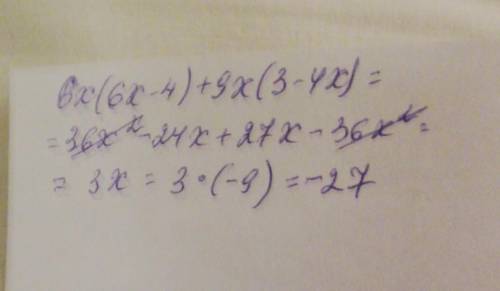 6x(6x-4)+9x(3-4x)=
=36x²-24x+27x-36x²=
=3x=3·(-9)=-27